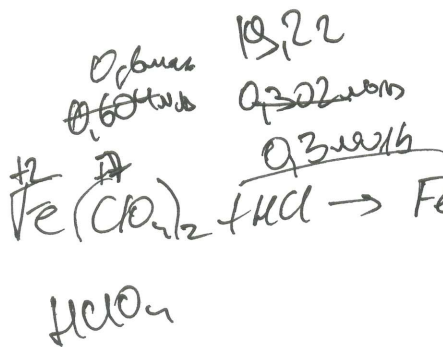 19,22
0,6моль
0,604моль 0,302моль
0,3моль
+2 +7
Fe(ClO₄)₂ + HCl → Fe
HClO₄